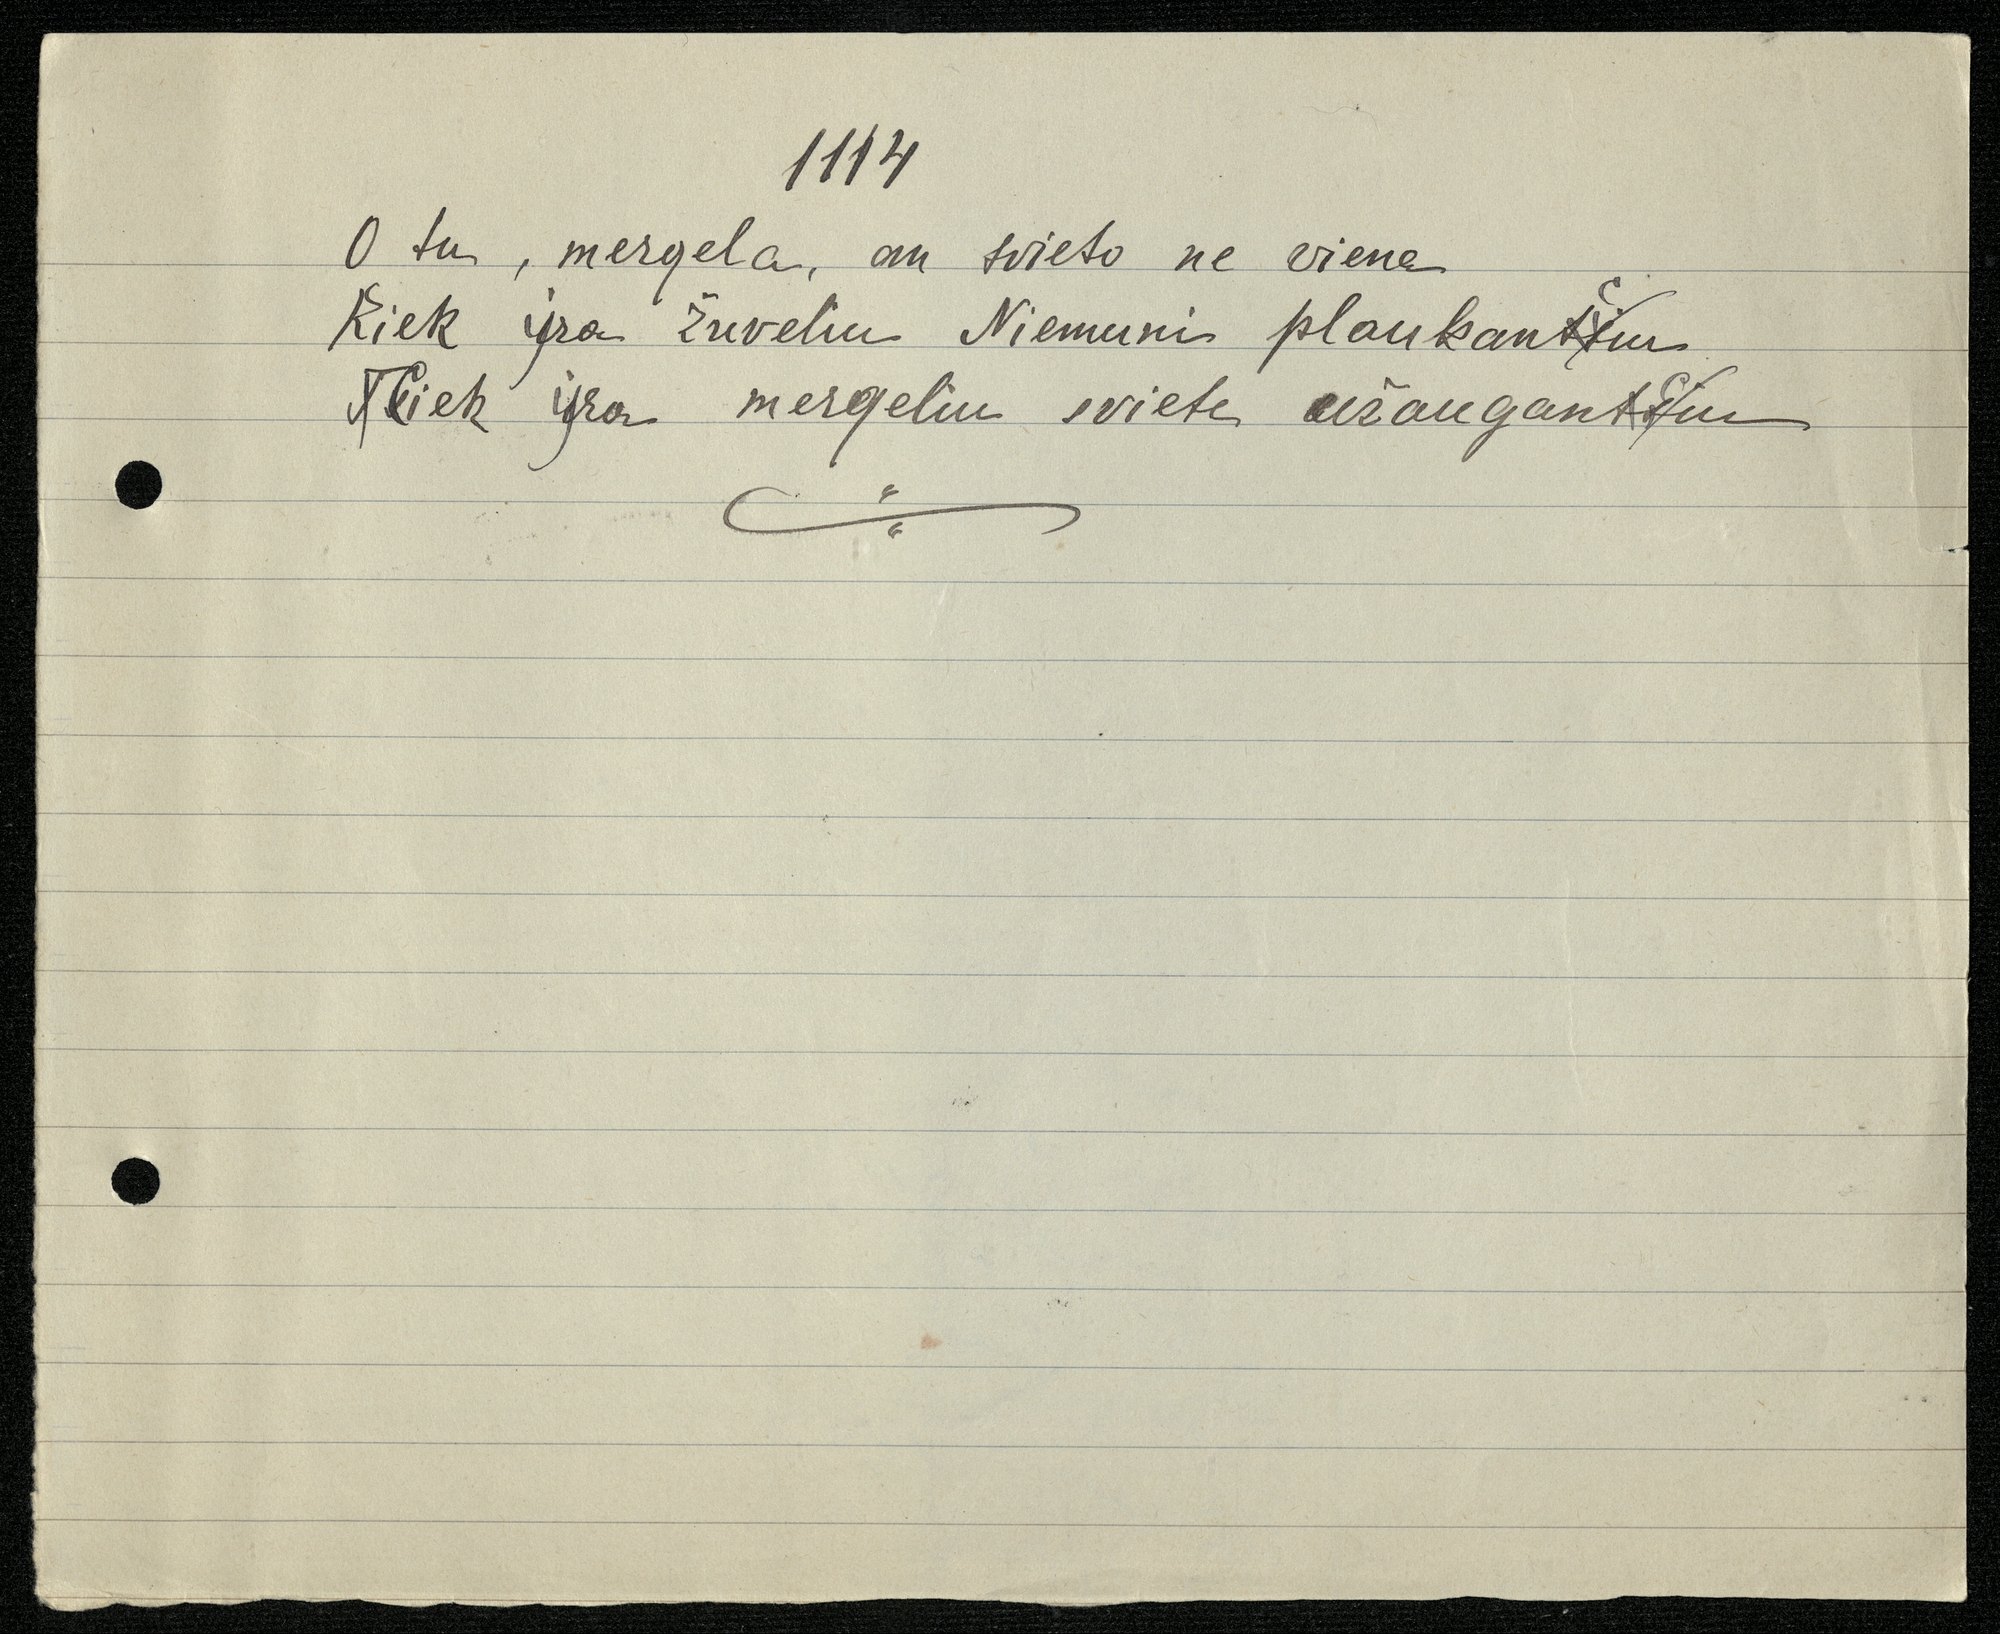 1114
O tu, mergela, an svieto ne viena
Kiek ira žuveliu Niemuni plaukančiu
Tiek ira mergeliu sviete užaugančiu